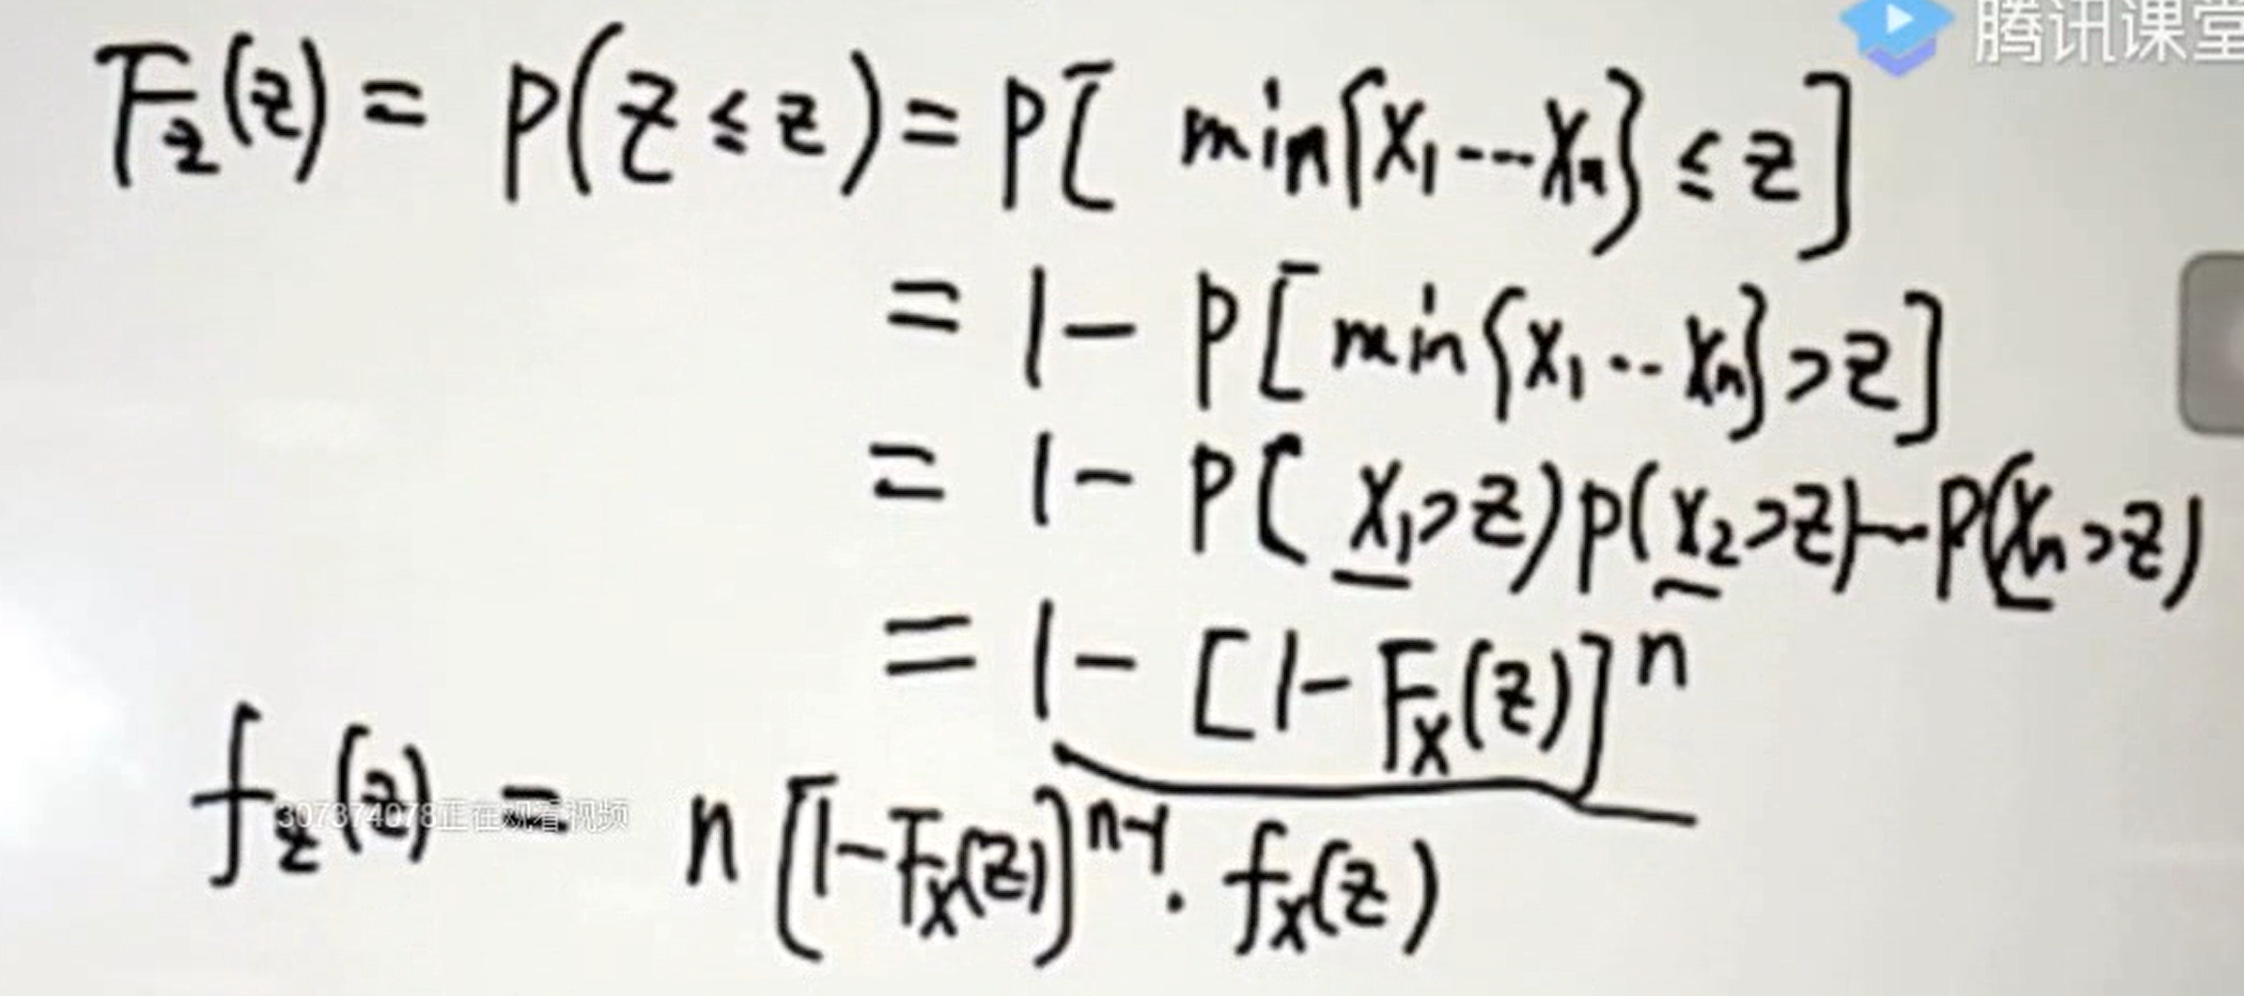 腾讯课堂
F_Z(z) = P(Z ≤ z) = P[ min{X₁---Xₙ} ≤ z]
= 1 - P[min{X₁--Xₙ} > z]
= 1 - P( X₁>z) P(X₂>z)---P(Xₙ>z)
= 1 - [1-F_X(z)]ⁿ
f_Z(z) = n[1-F_X(z)]ⁿ⁻¹ · f_X(z)
307374078正在观看视频